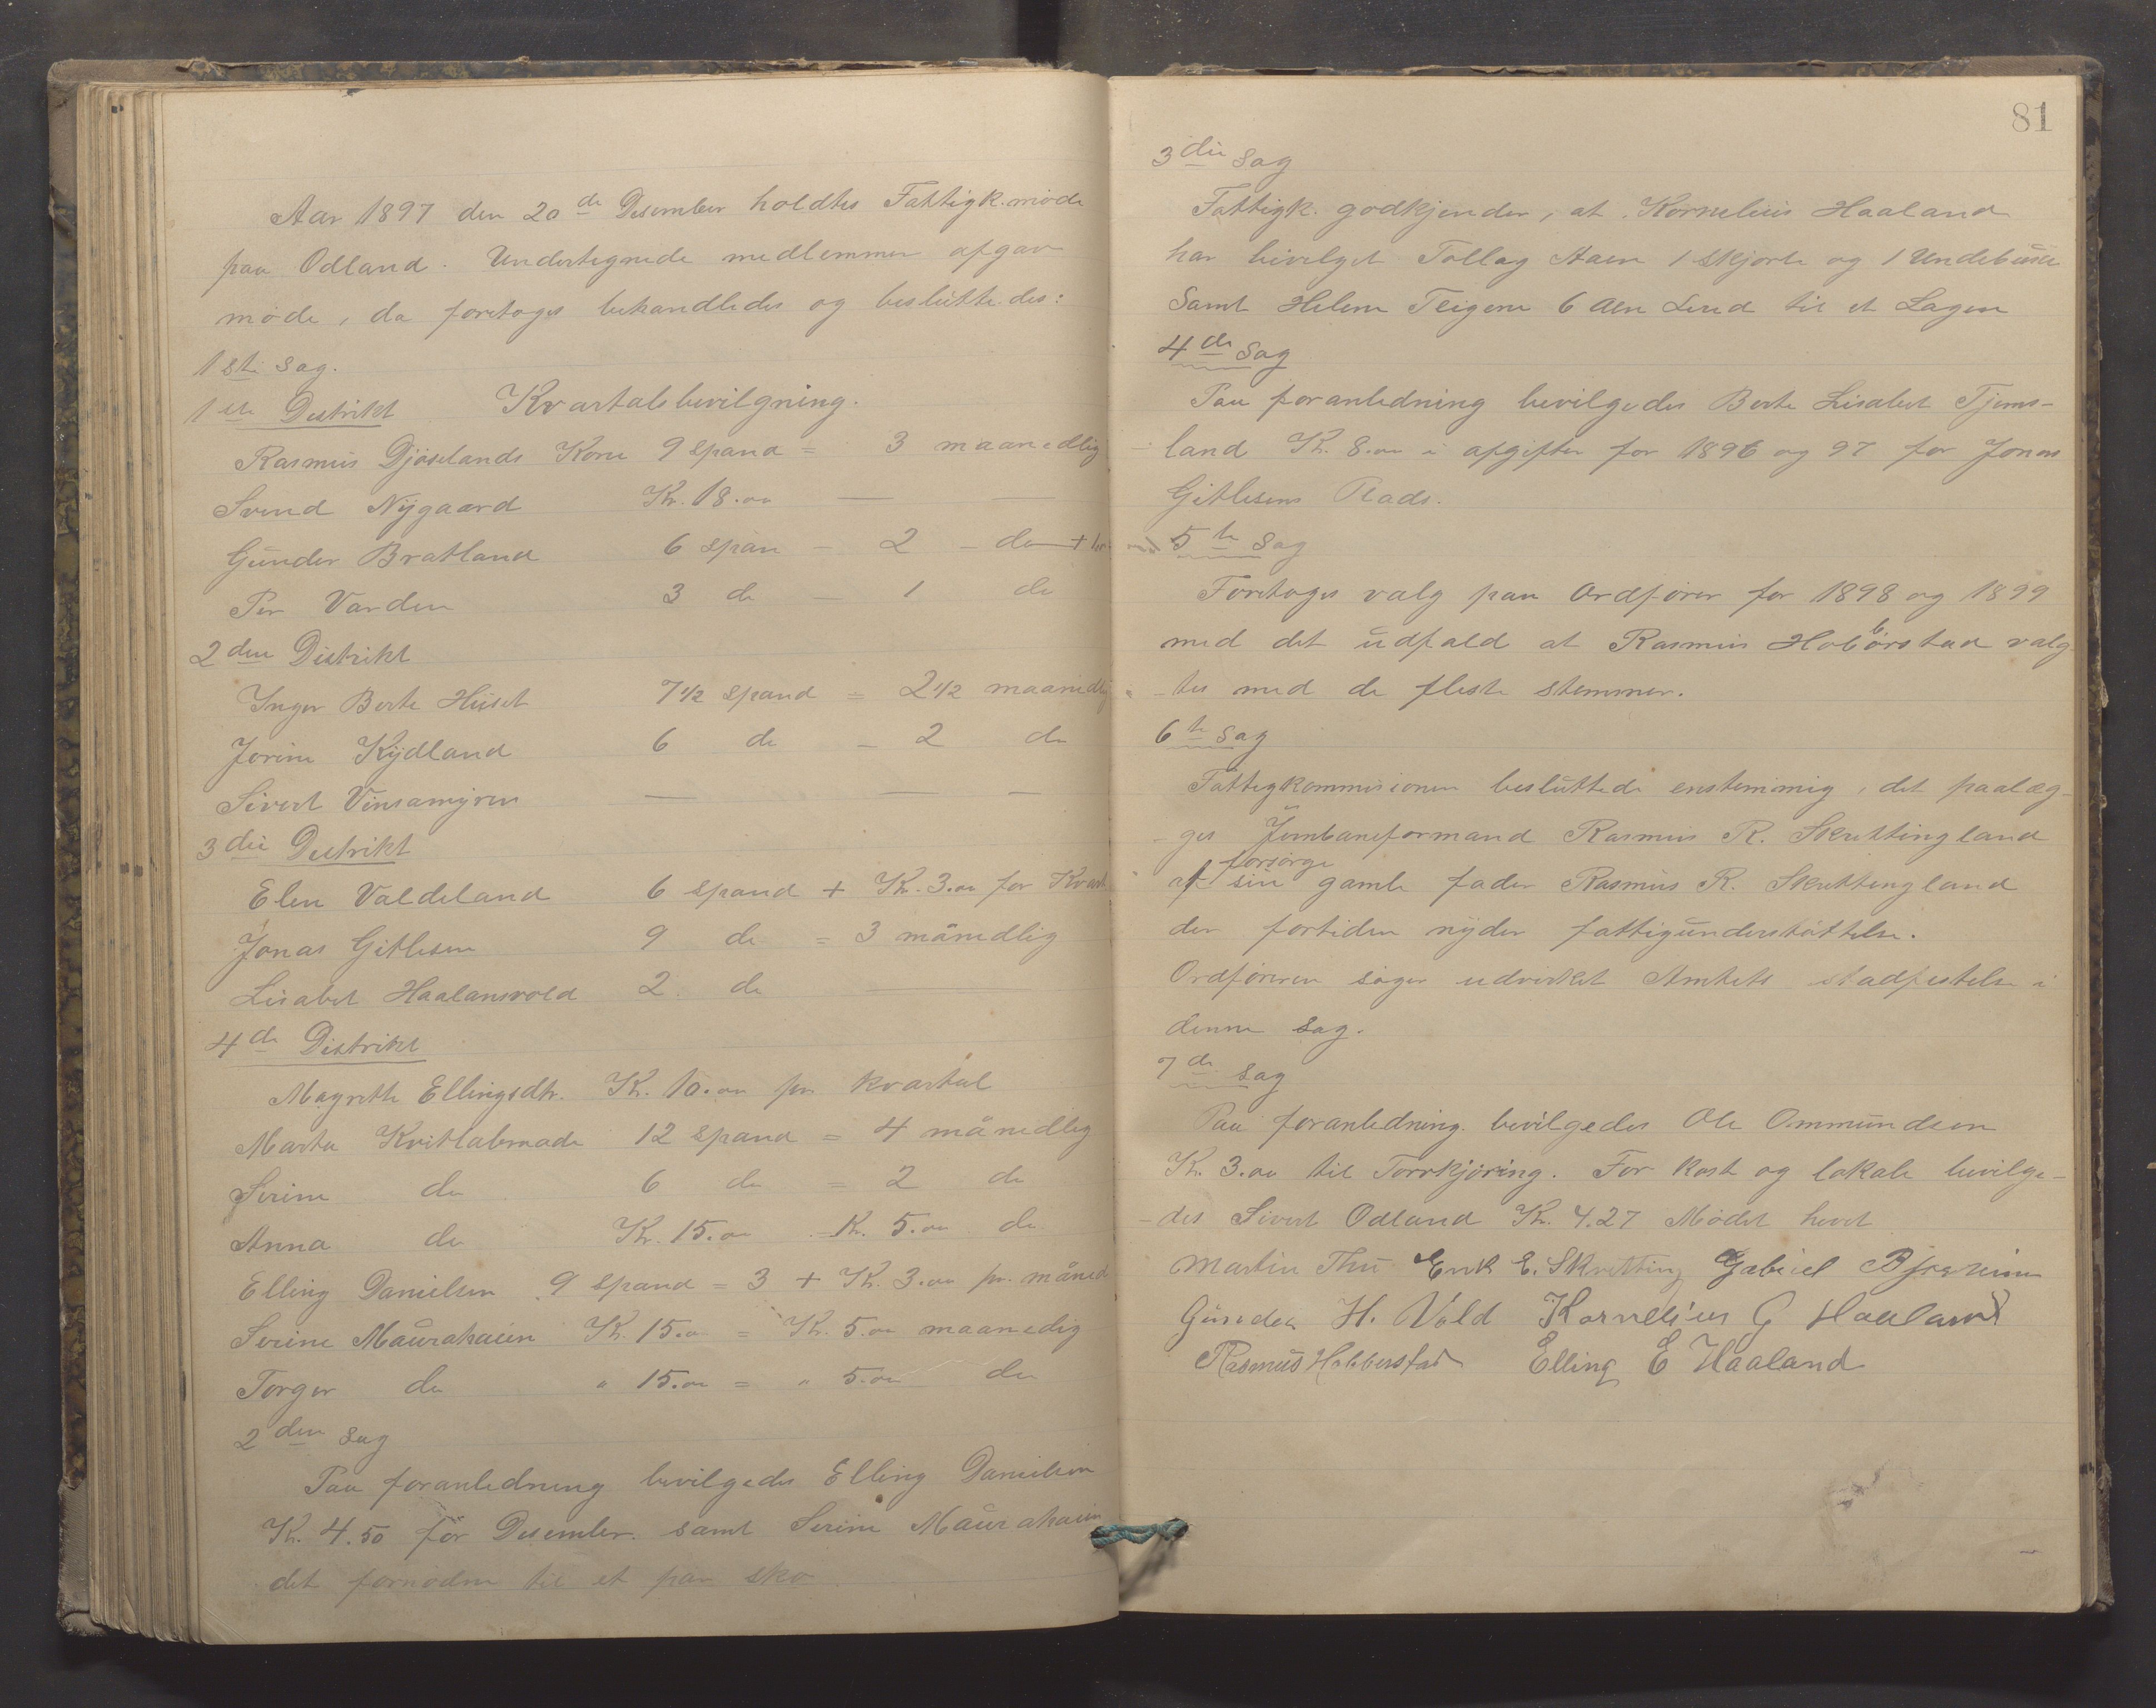 Aar 1897 den 20de Desember holdtes Fattigk.møde
paa Odland. Undertegnede medlemmer afgav
møde, da foretoges behandledes og besluttedes:
1ste Sag.
1ste Distrikt Kvartalsbevilgning.
Rasmus Djøselands Kone 9 spand = 3 maanedlig
Svend Nygaard Kr. 18.00 — —
Gunder Bratland 6 span – 2 – do +
Per Varden 3 do – 1 do
2den Distrikt
Inger Berte Huset 7 1/2 spand = 2 1/2 maanedlig
Jorine Kydland 6 do – 2 do
Sivert Vinsamyren — — —
3die Distrikt
Elen Valdeland 6 spand + Kr. 3.00 for Kvart
Jonas Gitlesen 9 do = 3 månedlig
Lisabet Haalansvold 2 do —
4de Distrikt
Magrethe Ellingsdtr. Kr. 10.00 pr kvartal
Marta Kvitlabmade 12 spand = 4 månedlig
Serine do 6 do = 2 do
Anna do Kr. 15.00 Kr. 5.00 do
Elling Danielsen 9 spand = 3 + Kr. 3.00 pr. måned
Serine Maurahaien Kr. 15.00 = Kr. 5.00 maanedig
Torger do " 15.00 = " 5.00 do
2den Sag
Paa foranledning bevilgedes Elling Danielsen
Kr. 4.50 for Desember. samt Serine Maurahaien
det fornødne til et par sko
81
3die Sag
Fattigk. godkjender, at Kornelius Haaland
har bevilget Tollag Aaen 1 skjorte og 1 Undebuxe
Samt Helene Teigene 6 Alen Lerud til et Lagen
4de Sag
Paa foranledning bevilgedes Berte Lisabet Tjems-
land Kr. 8.00 i afgifter for 1896 og 97 for Jonas
Gitlesens Plads.
5te Sag
Foretoges valg paa Ordfører for 1898 og 1899
med det udfald at Rasmus Hobbørstad valg
-tes med de fleste stemmer.
6te Sag
Fattigkommisionen besluttede enstemmig, det paalæg-
-ges Jernbaneformand Rasmus R. Skrettingland
at forsørge sin gamle fader Rasmus R. Skrettingland
der fortiden nyder fattigunderstøttelse.
Ordføreren søger udvirket Amtets stadfestelse i
denne sag.
7de Sag
Paa foranledning bevilgedes Ole Ommundsen
Kr. 3.00 til Torvkjøring. For kost og lokale bevilge-
-des Sivert Odland Kr. 4.27 Mødet hevet
Martin Thu Erik E. Skretting Gabriel Bjereim
Gunder H. Vold Kornelius G Haaland
Rasmus Hobberstad Elling E Haaland